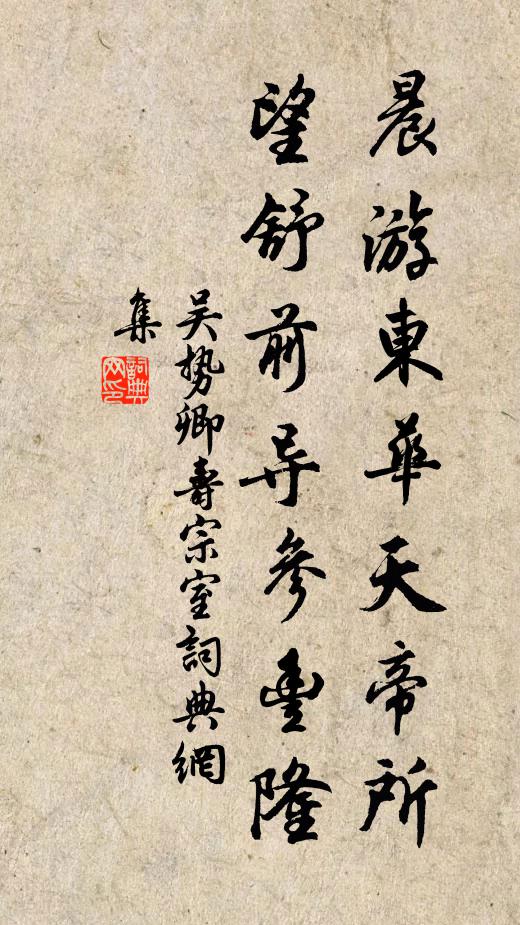 晨游東華天帝所
望舒前导參豐隆
吴势卿寿宗室詞典網
集
詞典
网印